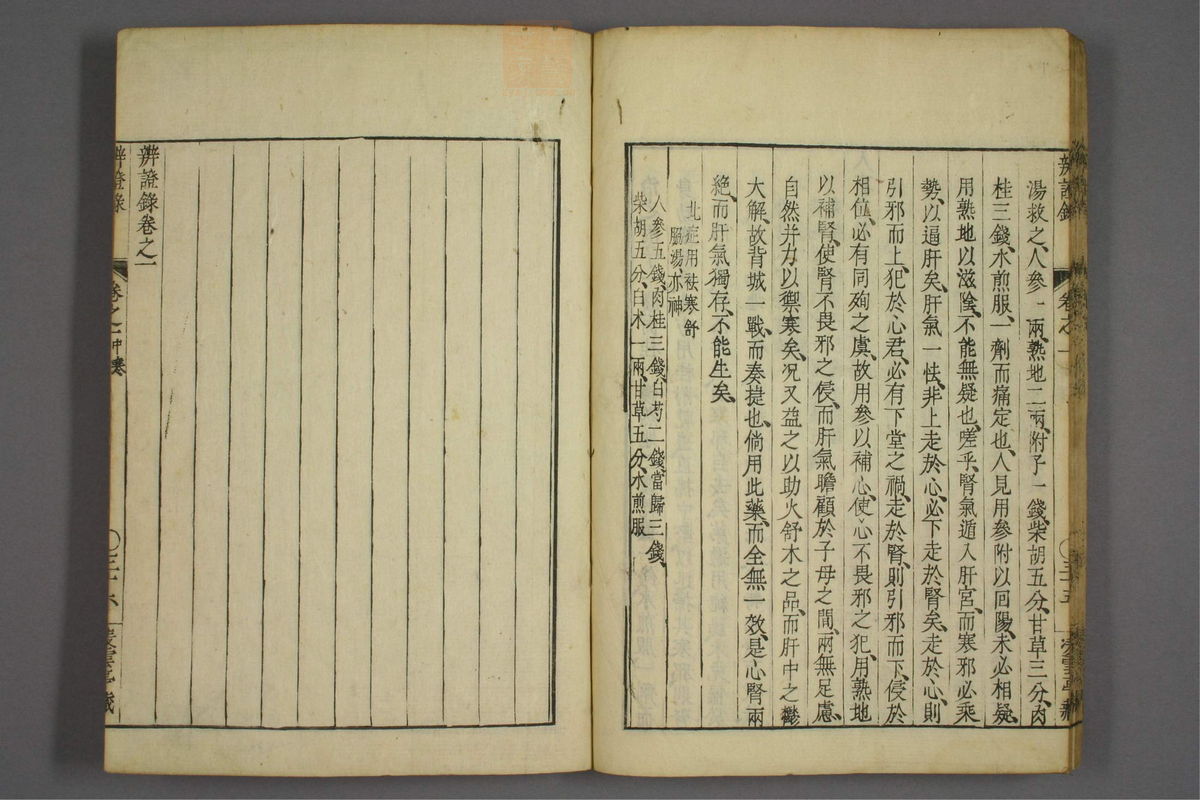 湯救之、人參一兩、熟地二兩、附子一錢、柴胡五分、甘草三分、肉
桂三錢、水煎服、一劑而痛定也、人見用參附以回陽、未必相疑、
用熟地以滋陰、不能無疑也、嗟乎、腎氣遁入肝宮、而寒邪必乘
勢、以逼肝矣、肝氣一怯、非上走於心、必下走於腎矣、走於心、則
引邪而上、犯於心君、必有下堂之禍、走於腎、則引邪而下、侵於
相位、必有同殉之虞、故用參以補心、使心不畏邪之犯、用熟地
以補腎、使腎不畏邪之侵、而肝氣瞻顧於子母之間、兩無足慮、
自然并力以禦寒矣、况又益之以助火舒木之品、而肝中之鬱
大解、故背城一戰、而奏捷也、倘用此藥、而全無一效、是心腎兩
絕、而肝氣獨存、不能生矣、
此症用祛寒舒
脇湯、亦神
人參五錢、肉桂三錢、白芍二錢、當歸三錢、
柴胡五分、白朮一兩、甘草五分、水煎服
辨證錄卷之一
辨證錄
卷之一中寒
三十六